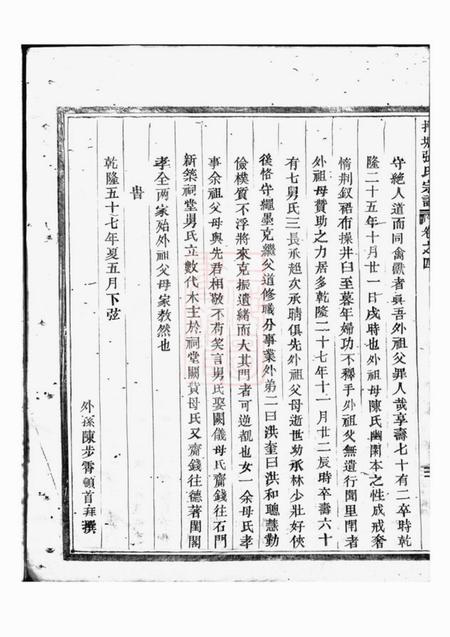 張氏宗譜 卷之四
守絕人道而同禽獸者眞吾外祖父罪人哉享壽七十有二卒時乾
隆二十五年十月廿一日戌時也外祖母陳氏幽閑本之性成戒奢
惰荆釵裙布操井臼至暮年婦功不釋手外祖父無遺行閫里閈者
外祖母贊助之力居多乾隆二十七年十一月廿二辰時卒壽六十
有七舅氏三長承超次承睛俱先外祖父母逝世幼承林少壯好俠
後恪守繩墨克繼父道修職分事業外弟二曰洪奎曰洪和聰慧勤
儉樸質不浮將來克振遺緒而大其門者可逆覩也女一余母氏孝
事余祖父母與先君相敬不苟笑言舅氏娶闕儀母氏齎錢往石門
新築祠堂舅氏立數代木主於祠堂闕貲母氏又齎錢往德著閨閣
孝全兩家殆外祖父母家教然也
旹
乾隆五十七年夏五月下弦
外孫陳步霄頓首拜撰